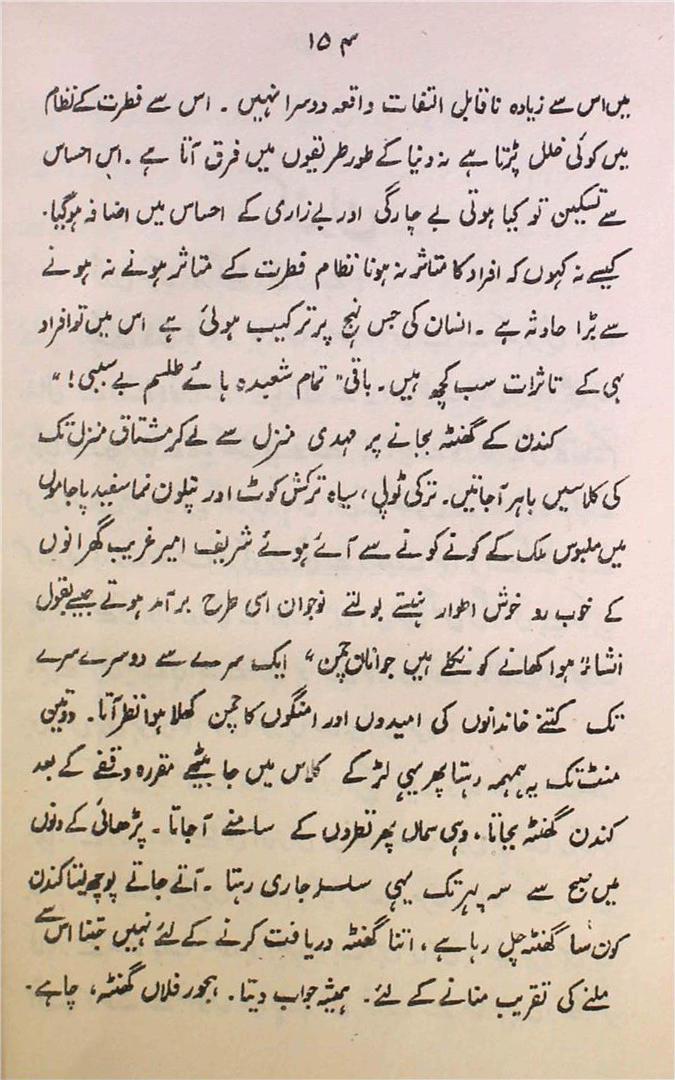 ۱۵۴
میں اس سے زیادہ ناقابل التفات واقعہ دوسرا نہیں ۔ اس سے فطرت کے نظام
میں کوئی خلل پڑتا ہے نہ دنیا کے طور طریقوں میں فرق آتا ہے ۔ اس احساس
سے تسکین تو کیا ہوتی بے چارگی اور بے زاری کے احساس میں اضافہ ہوگیا۔
کیسے نہ کہوں کہ افراد کا متاثر نہ ہونا نظام فطرت کے متاثر ہونے نہ ہونے
سے بڑا حادثہ ہے ۔ انسان کی جس نہج پر ترکیب ہوئی ہے اس میں تو افراد
ہی کے تاثرات سب کچھ ہیں۔ باقی " تمام شعبدہ ہائے طلسم بے سببی ! "
کندن کے گھنٹہ بجانے پر مہدی منزل سے لے کر مشتاق منزل تک
کی کلاسیں باہر آجاتیں۔ ترکی ٹوپی ، سیاہ ترکش کوٹ اور پتلون نما سفید پاجاموں
میں ملبوس ملک کے کونے کونے سے آئے ہوئے شریف امیر غریب گھرانوں
کے خوب رو خوش اطوار ہنستے بولتے نوجوان اسی طرح برآمد ہوتے جیسے بقول
انشاؔ " ہوا کھانے کو نکلے ہیں جوانان چمن " ایک سرے سے دوسرے سرے
تک کتنے خاندانوں کی امیدوں اور امنگوں کا چمن کھلا ہوا نظر آتا۔ دو تین
منٹ تک یہ ہمہمہ رہتا پھر یہی لڑکے کلاس میں جا بیٹھتے مقررہ وقفے کے بعد
کندن گھنٹہ بجاتا ، وہی سماں پھر نظروں کے سامنے آجاتا ۔ پڑھائی کے دنوں
میں صبح سے سہ پہر تک یہی سلسلہ جاری رہتا ۔ آتے جاتے پوچھ لیتا کندن
کون سا گھنٹہ چل رہا ہے ، اتنا گھنٹہ دریافت کرنے کے لئے نہیں جتنا اس سے
ملنے کی تقریب منانے کے لئے ۔ ہمیشہ جواب دیتا۔ ، بجور فلاں گھنٹہ ، چاہے ۔